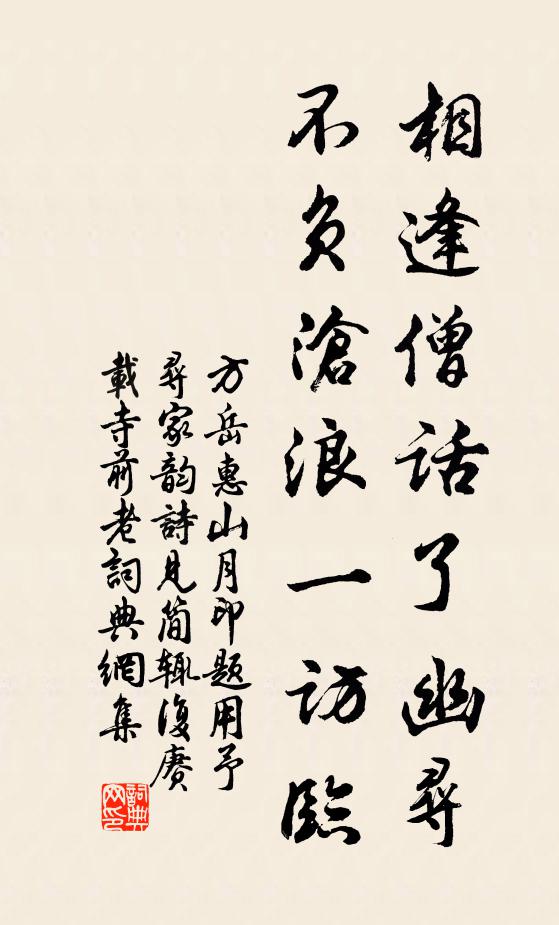 相逢僧話了幽尋
不負滄浪一訪臨
方岳惠山月印題用予
尋家韵詩見简辄復賡
載寺前老詞典網集
詞典网印